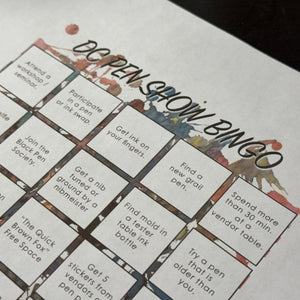 DC PEN SHOW BINGO
Attend a
workshop /
seminar.
Participate
in a pen
or ink swap
Get ink on
your fingers.
Find a
new grail
pen.
Spend more
than 30 min.
at a
vendor table.
Join the
Black Pen
Society.
Get a nib
tuned or
ground by a
nibmeister
Find mold in
a tester
table ink
bottle
Try a pen
that is
older than
you.
"The Quick
Brown Fox"
Free Space
Get 5
stickers from
pen